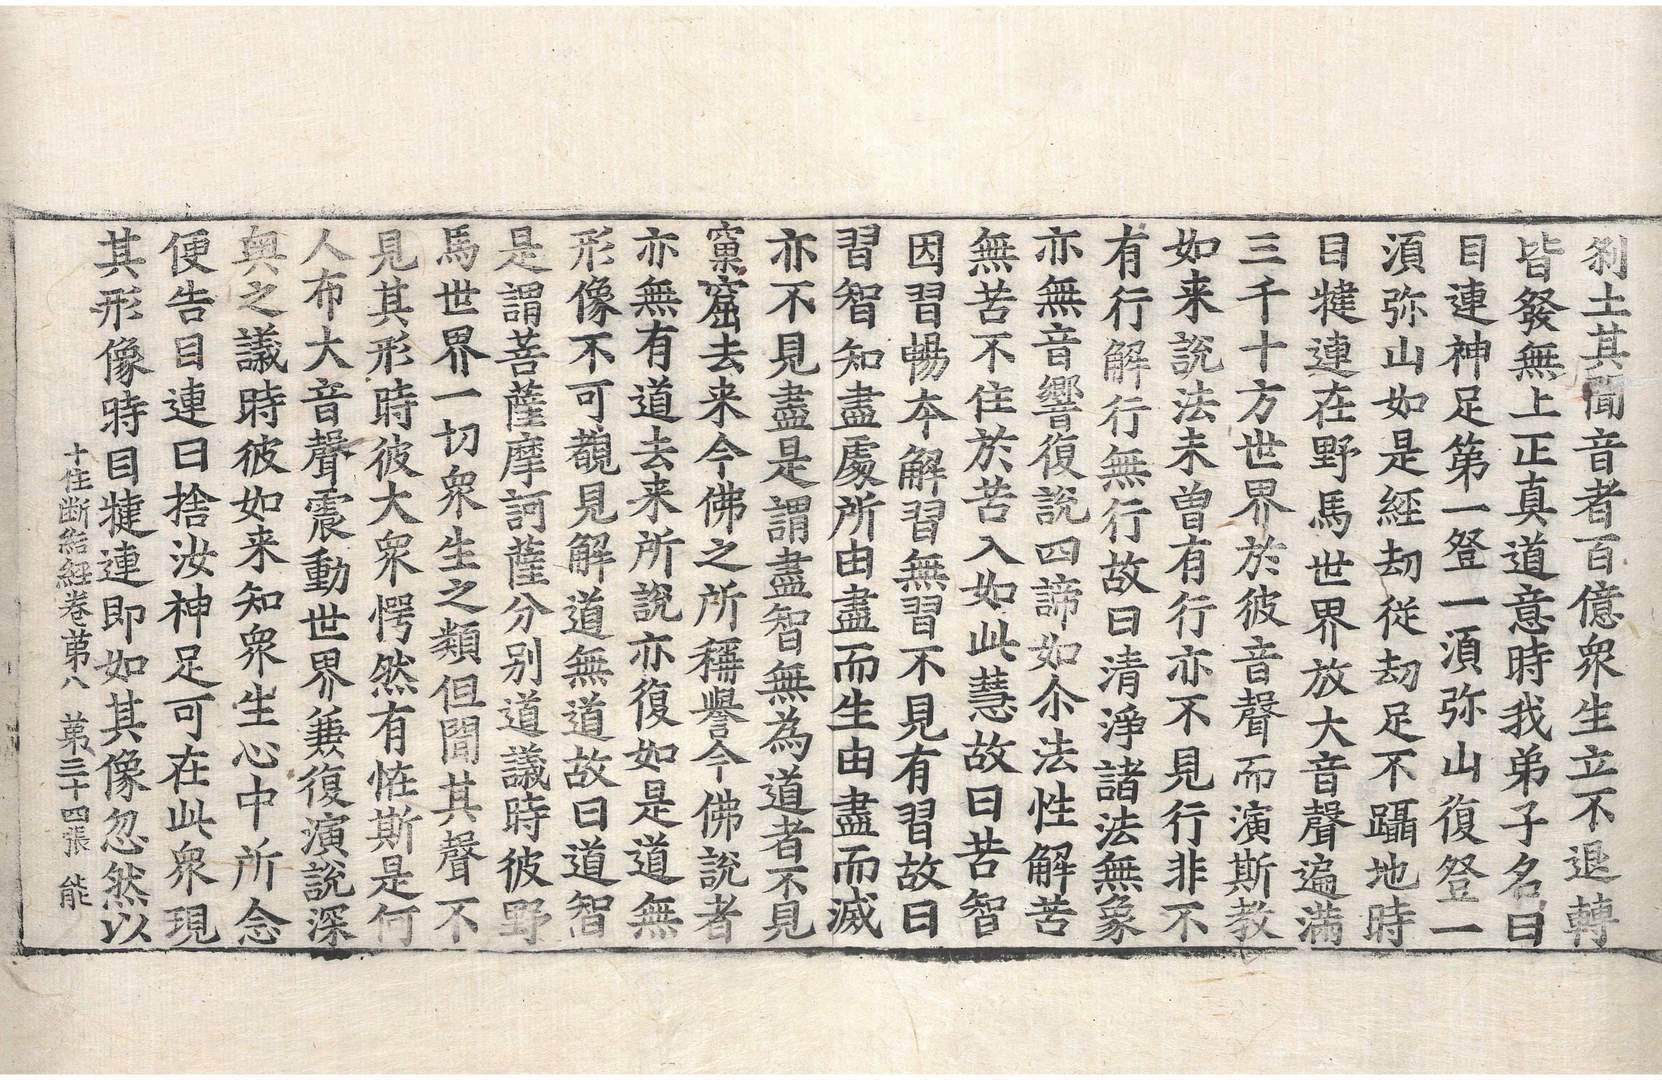 刹土其聞音者百億衆生立不退轉
皆發無上正真道意時我弟子名曰
目連神足第一登一湏弥山復登一
湏弥山如是經劫従劫足不躡地時
目揵連在野馬世界放大音聲遍滿
三千十方世界於彼音聲而演斯教
如来說法未曽有行亦不見行非不
有行解行無行故曰清淨諸法無象
亦無音響復說四諦如尒法性解苦
無苦不住於苦入如此慧故曰苦智
因習暢夲解習無習不見有習故曰
習智知盡處所由盡而生由盡而滅
亦不見盡是謂盡智無為道者不見
窠窟去来今佛之所稱譽今佛說者
亦無有道去来所說亦復如是道無
形像不可覩見解道無道故曰道智
是謂菩薩摩訶薩分别道議時彼野
馬世界一切衆生之類但聞其聲不
見其形時彼大衆愕然有恠斯是何
人布大音聲震動世界兼復演說深
奥之議時彼如来知衆生心中所念
便告目連曰捨汝神足可在此衆現
其形像時目揵連即如其像忽然以
十住断結經卷苐八　苐三十四張　能